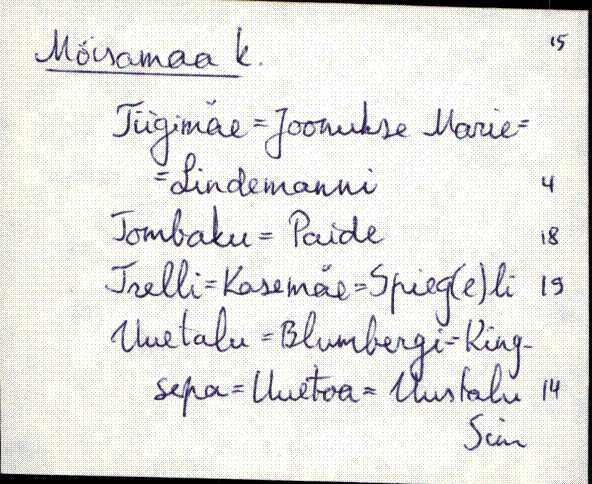 Mõisamaa k. 15
Tiigimäe = Joonukse Marie =
= Lindemanni 4
Tombaku = Paide 18
Trelli = Kasemäe = Spieg(e)li 19
Uuetalu = Blumbergi = King-
sepa = Uuetoa = Uustalu 14